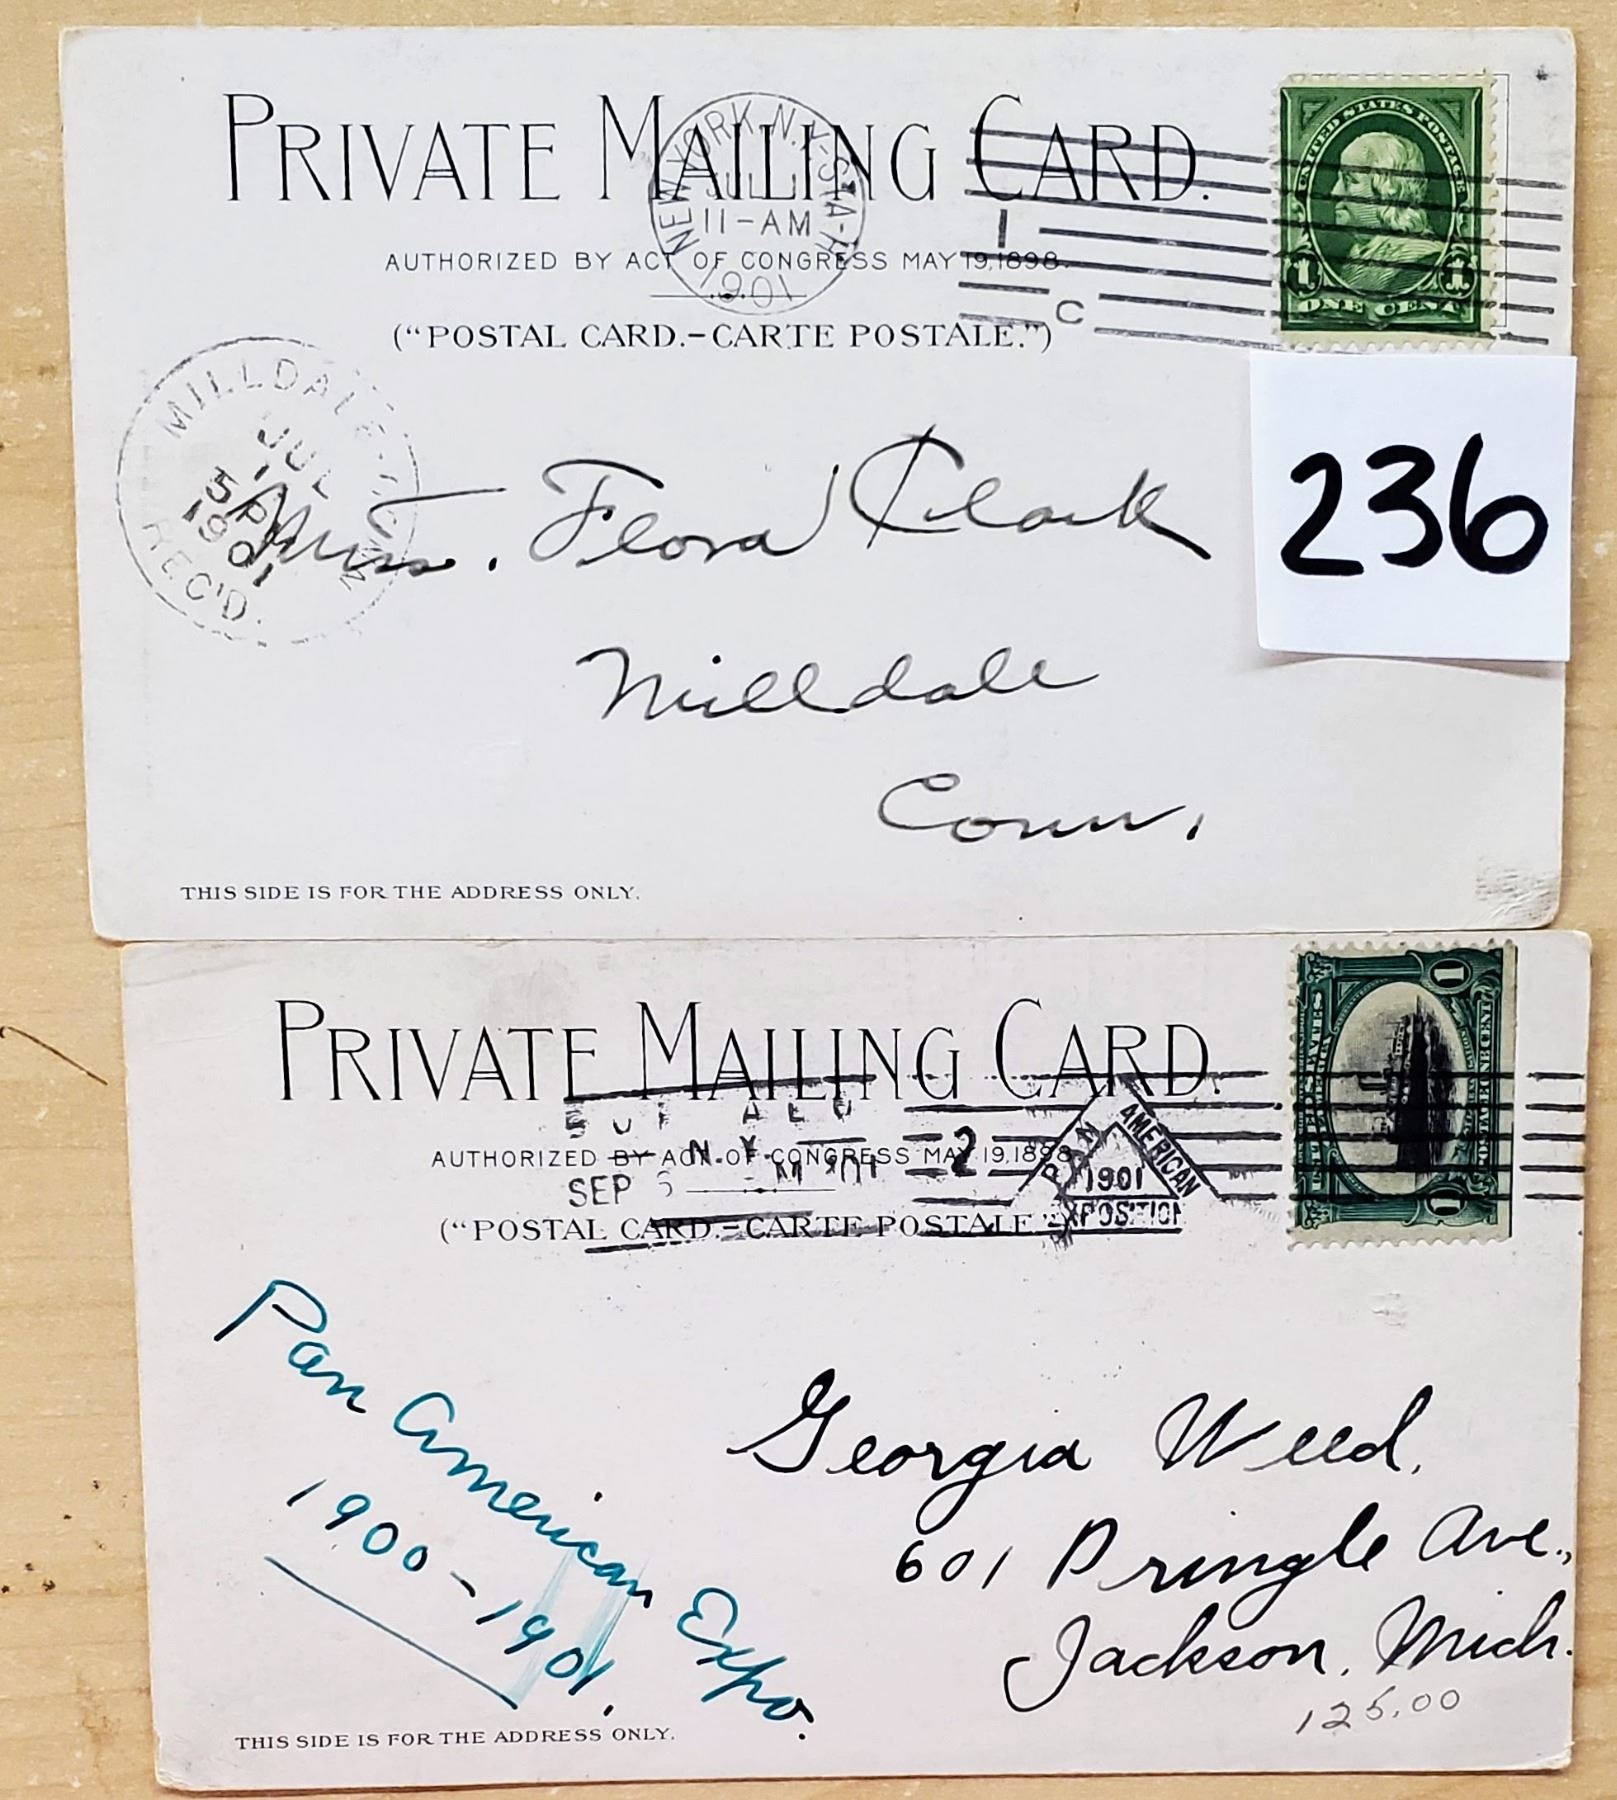 PRIVATE MAILING CARD.
NEW YORK N.Y.-STA-H
JUL 1
11-AM
1901
1
C
UNITED STATES POSTAGE
1 1
ONE CENT
AUTHORIZED BY ACT OF CONGRESS MAY 19, 1898.
("POSTAL CARD.-CARTE POSTALE.")
MILLDALE, CONN
JUL
1901
REC'D.
236
Flora Clark
Milldale
Conn.
THIS SIDE IS FOR THE ADDRESS ONLY.
PRIVATE MAILING CARD.
BUFFALO
N.Y.
SEP
2
PAN AMERICAN
1901
EXPOSITION
1 1
AUTHORIZED BY ACT OF CONGRESS MAY 19, 1898.
("POSTAL CARD.-CARTE POSTALE.")
Pan American Expo.
1900-1901.
Georgia Weed,
601 Pringle Ave.,
Jackson, Mich.
125.00
THIS SIDE IS FOR THE ADDRESS ONLY.